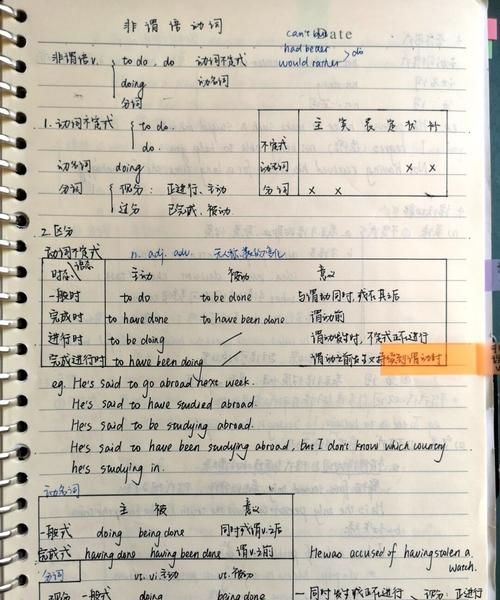 非谓语动词
can't but
had better
would rather
do
Date
非谓语v. to do, do 动词不定式
doing 动名词
分词
1. 动词不定式 to do.
do.
主 宾 表 定 状 补
不定式
动名词 x x
分词 x x
动名词 doing
分词 现分: 正进行、主动
过分 已完成、被动
2. 区分
动词不定式 n. adj. adv. 无人称、数的变化
时态 语态 主动 被动 意义
一般时 to do to be done 与谓动同时,或在其之后
完成时 to have done to have been done 谓动前
进行时 to be doing 谓动发生时,不定式正在进行
完成进行时 to have been doing 谓动之前发生又持续到谓动时
eg. He's said to go abroad next week.
He's said to have studied abroad.
He's said to be studying abroad.
He's said to have been studying abroad, but I don't know which country
he's studying in.
动名词
主 被 意义
一般式 doing being done 同时或谓v.后
完成式 having done having been done 谓v.之前
He was accused of having stolen a
watch.
分词 vt. vi.主动 vt.被动
现分 一般式 doing being done 一同时发生或正在进行 现分: 正进行